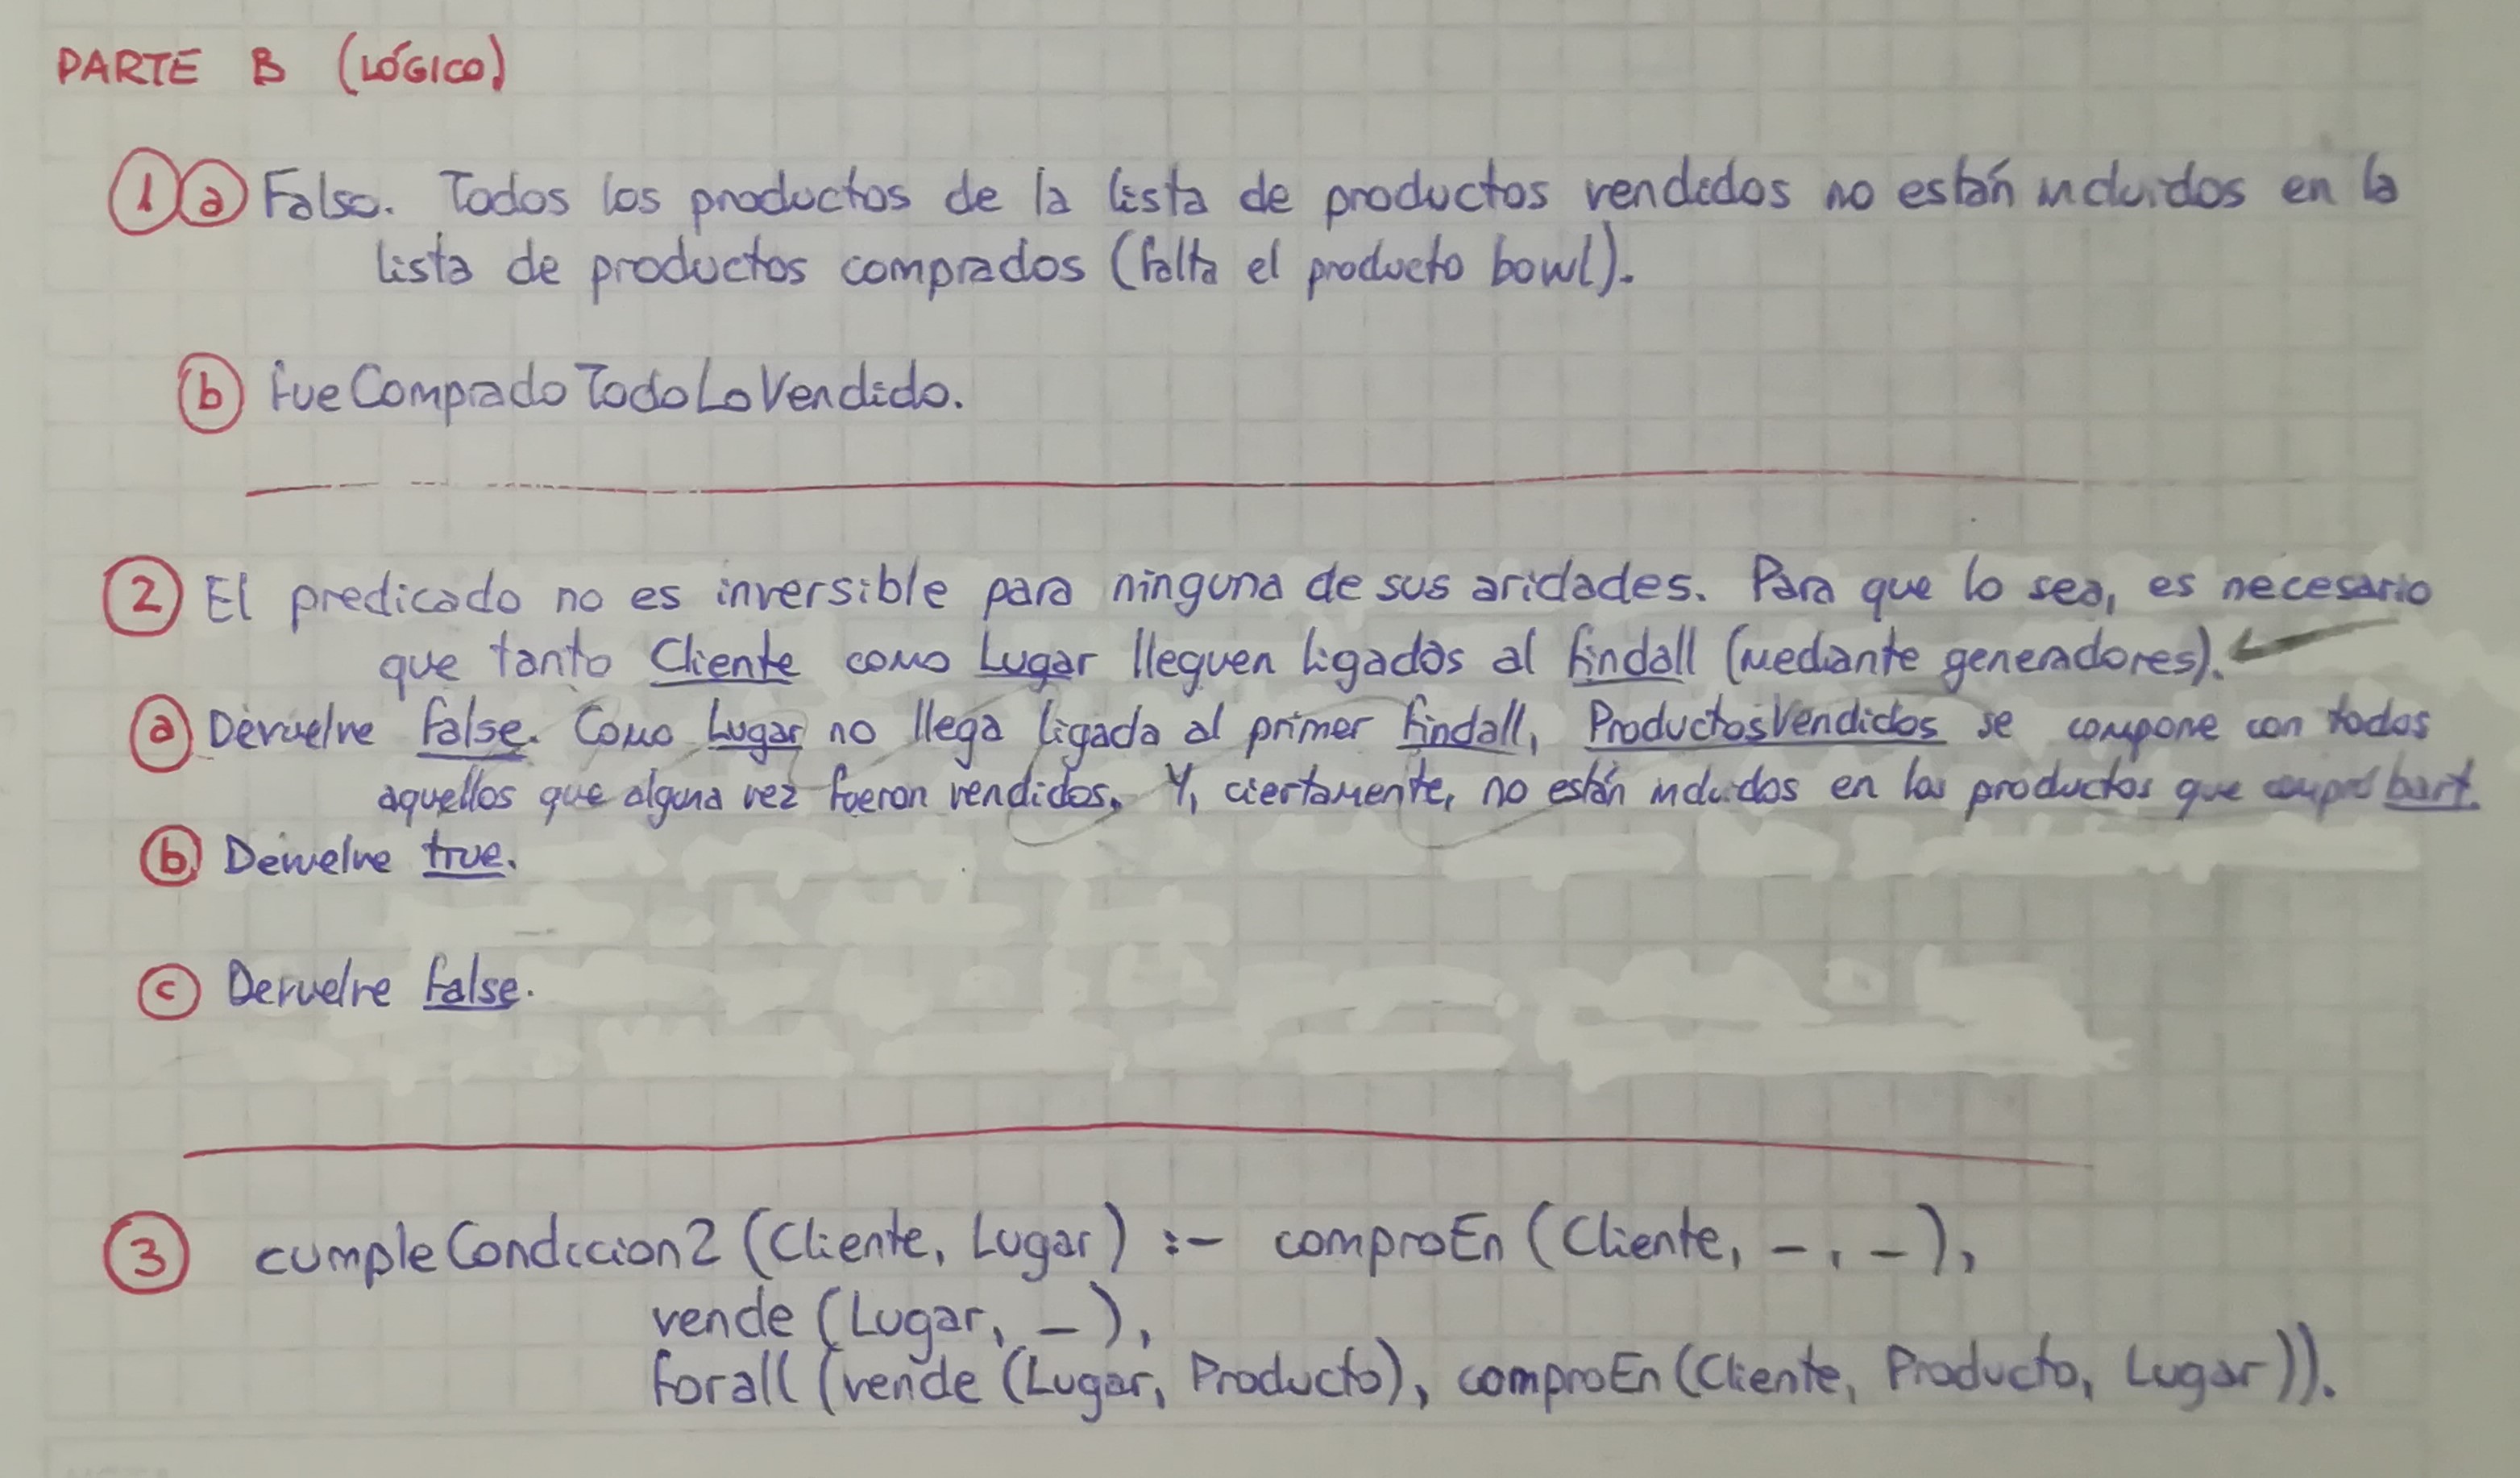 PARTE B (LÓGICO)
1 a Falso. Todos los productos de la lista de productos vendidos no están incluidos en la
lista de productos comprados (falta el producto bowl).
b fueCompradoTodoLoVendido.
2 El predicado no es inversible para ninguna de sus aridades. Para que lo sea, es necesario
que tanto Cliente como Lugar lleguen ligados al findall (mediante generadores).
a Devuelve false. Como Lugar no llega ligada al primer findall, ProductosVendidos se compone con todos
aquellos que alguna vez fueron vendidos. Y, ciertamente, no están incluidos en los productos que compró bart.
b Devuelve true.
c Devuelve false.
3 cumpleCondicion2 (Cliente, Lugar) :- comproEn (Cliente, _, _),
vende (Lugar, _),
forall (vende (Lugar, Producto), comproEn (Cliente, Producto, Lugar)).